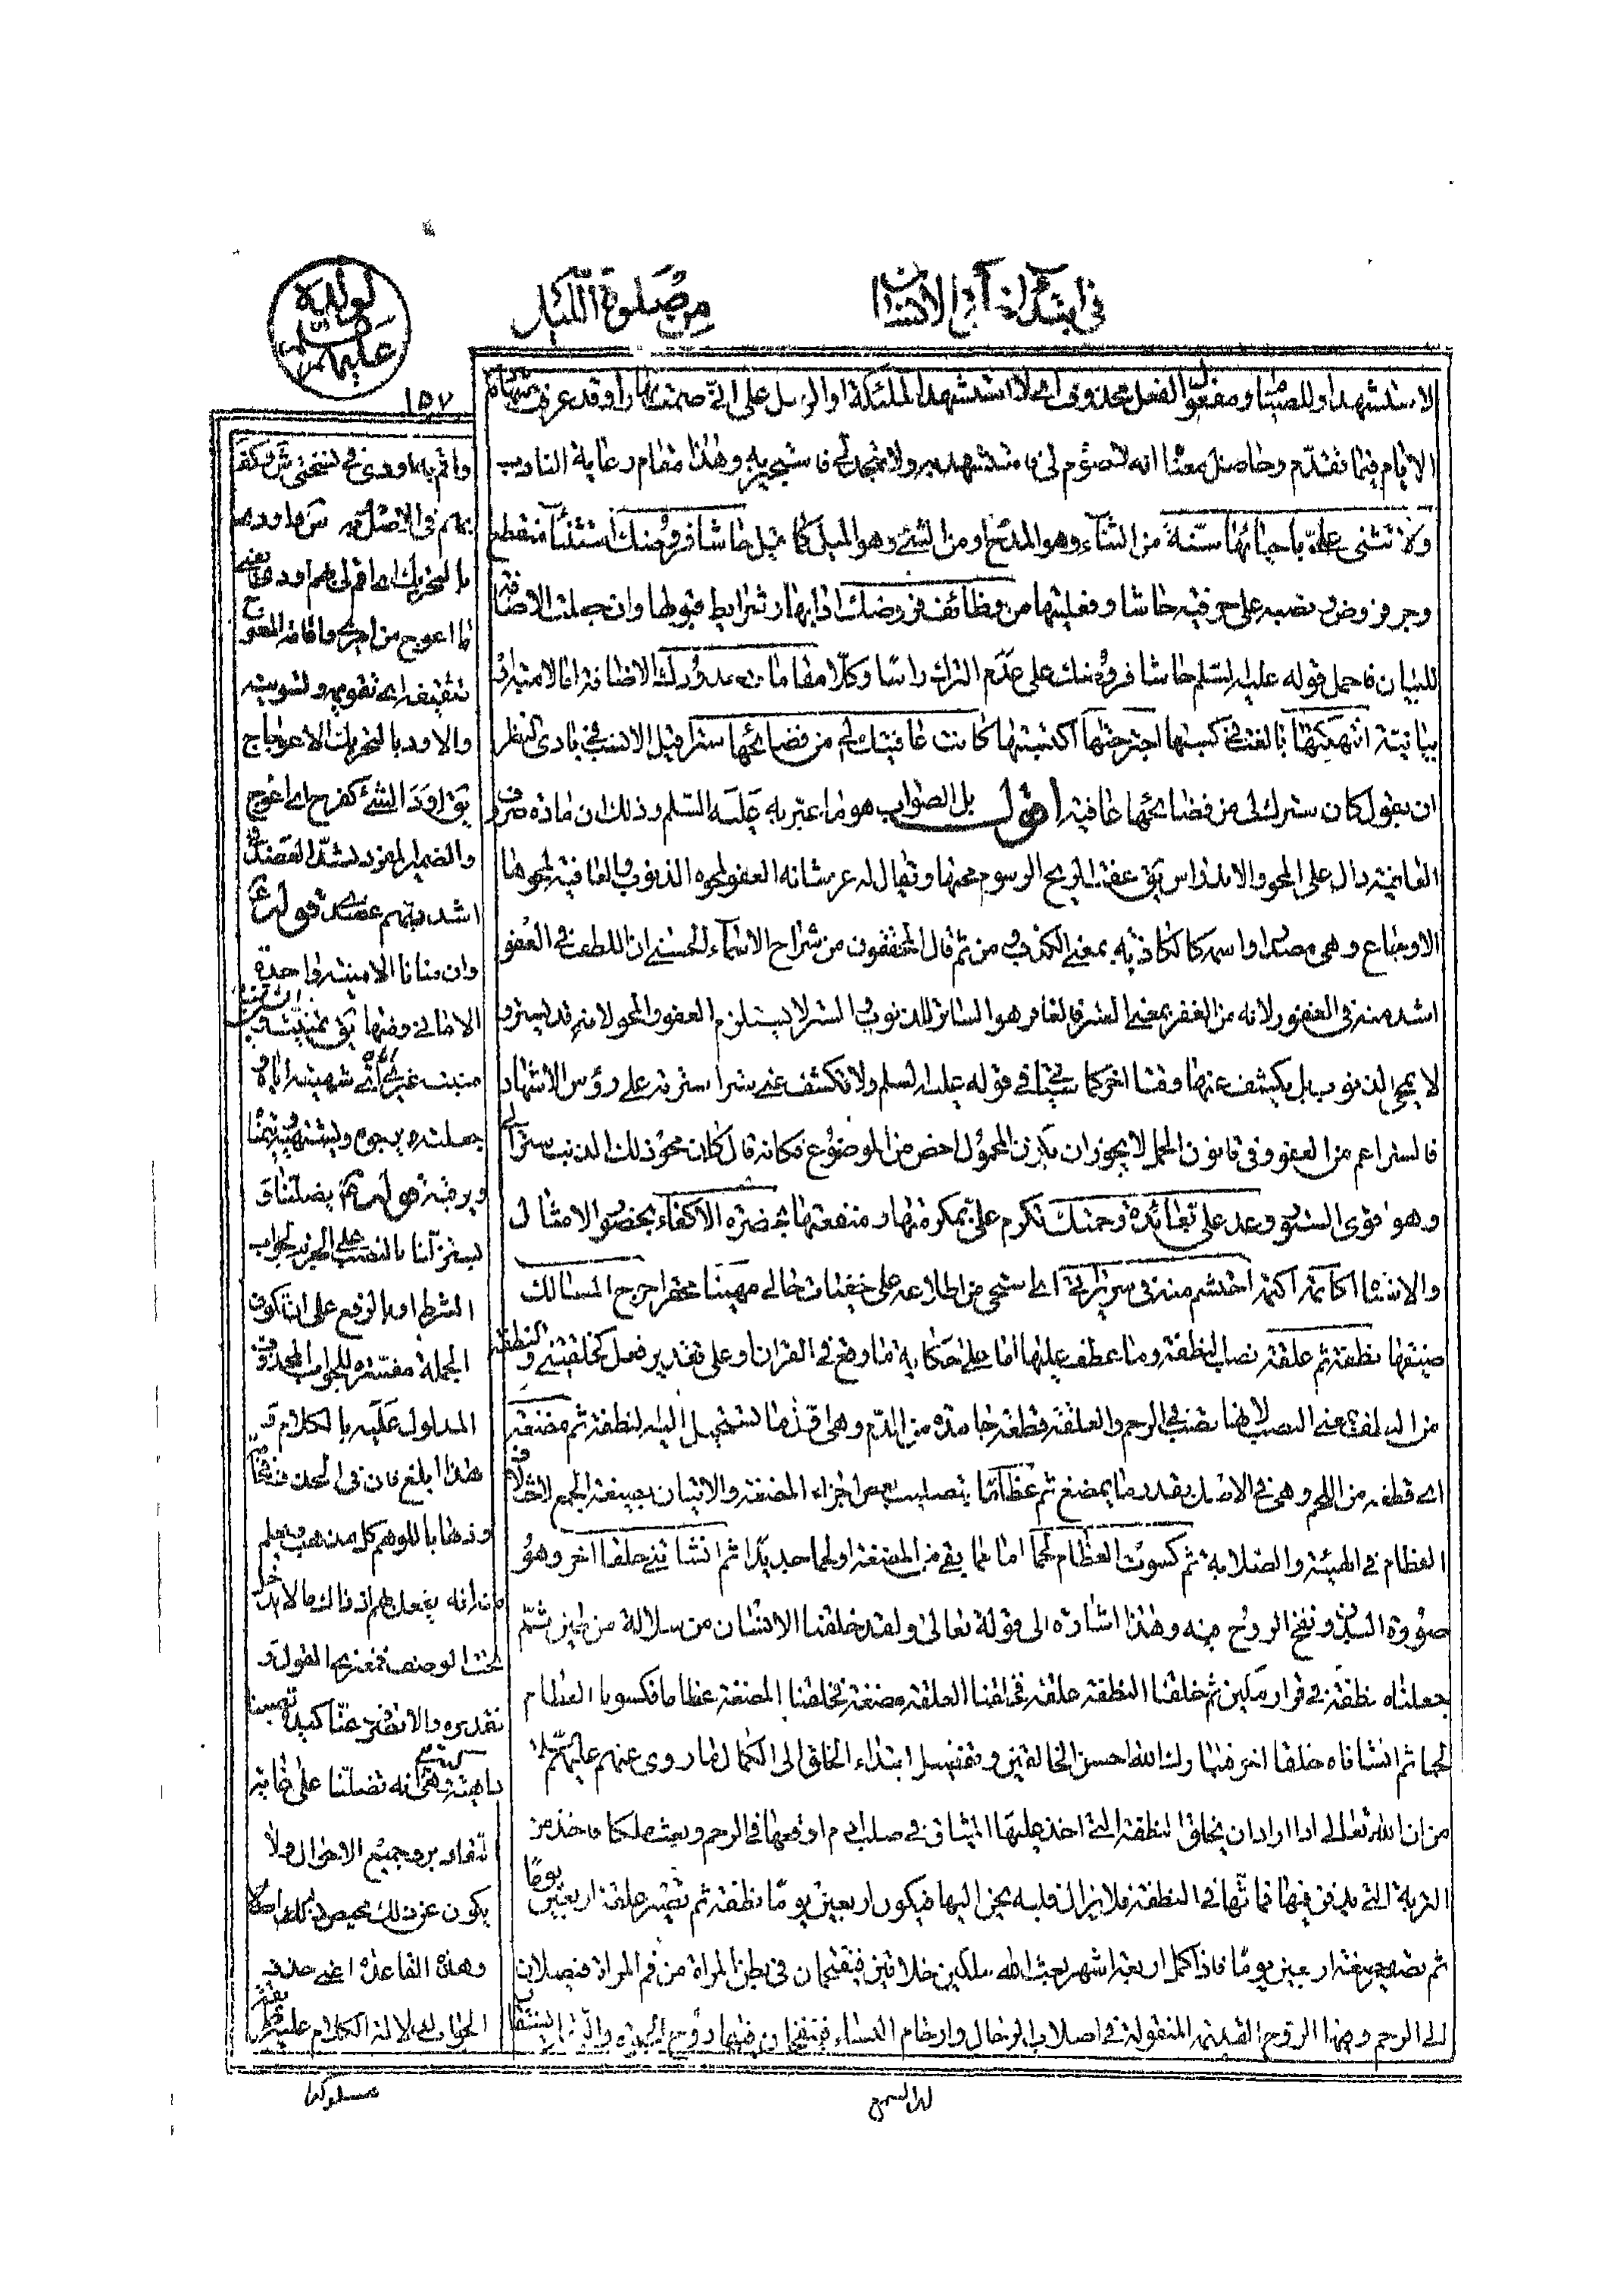 في ابتداء الانسان
من صلوة الليل
لوالديه
عليهم
١٥٧
الاستشهاد او للصبا ومفعول الفعل محذوف اى لا استشهد الملئكة او الرسل على انى صمت نهارا وقد عرفت
الايام فيما تقدم وحاصل معناه انه لا صوم لى فاستشهد به ولا تهجد لى فاستجير به وهذا مقام رعاية التادب
ولا تثنى على باحيائها سنة من الثناء وهو المدح او من الثنى وهو الميل كما قيل حاشا فروضك استثناء منقطع
وجر فروض ونصبه على حرفية حاشا وفعليتها من وظائف فروضك اذابها وشرايط قبولها وان جعلت الاضافة
للبيان فاحمل قوله عليه السلم حاشا فروضك على عدم الترك راسا وكلا مقاما حدودك الاضافة اما لامية او
بيانية انتهكتها بالغت فى كسبها اجترحتها اكتسبتها كانت عافيتك لى من فضائحها سترا قيل الانسب فى بادى النظر
ان يقول كان سترك لى من فضائحها عافية اقول بل الصواب هو ما عبر به عليه السلم وذلك ان مادة حروف
العافية دال على المحو والاندراس يق عفت الريح الرسوم محتها ويقال له عز شانه العفو لمحوه الذنوب والعافية لمحوها
الاوجاع وهى مصدر او اسم كالكاذبة بمعنى الكذب ومن ثم قال المحققون من شراح الاسماء الحسنى ان اللطف فى العفو
اشد منه فى الغفور لانه من الغفر بمعنى الستر فالغافر هو الساتر للذنوب والستر لا يستلزم العفو والمحو لانه قد يستر و
لا يمحى الذنوب بل يكشف عنها وقتا اخر كما سيجئ فى قوله عليه السلم ولا تكشف عنى سترا سترته على رؤس الاشهاد
فالستر اعم من العفو وفى قانون الحمل لا يجوز ان يكون المحمول اخص من الموضوع فكانه قال كان محو ذلك الذنب سترا لى
وهو اقوى الستر وعد على بعائدة رحمتك تكرم على بمكرمتها ومنفعتها بحضرة الاكفاء بحضور الامثال
والانشاء اكاتمه اكتم احتشم منه فى سريراتى اى استحى من اطلاعه على خفيات حالى مهينا محقرا حرج المسالك
ضيقها نطفة ثم علقة نصب النطفة وما عطف عليها اما على حكاية ما وقع فى القران او على تقدير فعل كخلقتنى والنطفة
من النطف بمعنى الصب لانها تصب فى الرحم والعلقة قطعة جامدة من الدم وهى اول ما تستحيل اليه النطفة ثم مضغة
اى قطعة من اللحم وهى فى الاصل بقدر ما يمضغ ثم عظاما بتصليب بعض اجزاء المضغة والاتيان بصيغة الجمع لاختلاف
العظام فى الهيئة والصلابة ثم كسوت العظام لحما اما مما بقى من المضغة او لحما جديدا ثم انشاتنى خلقا اخر وهو
صورة البدن ونفخ الروح فيه وهذا اشارة الى قوله تعالى ولقد خلقنا الانسان من سلالة من طين ثم
جعلناه نطفة فى قرار مكين ثم خلقنا النطفة علقة فخلقنا العلقة مضغة فخلقنا المضغة عظاما فكسونا العظام
لحما ثم انشاناه خلقا اخر فتبارك الله احسن الخالقين وتفصيل ابتداء الخلق الى الكمال ما روى عنهم عليهم السلام
من ان الله تعالى اذا اراد ان يخلق النطفة التى اخذ عليها الميثاق فى صلب ادم اوقعها فى الرحم وبعث ملكا فاخذ من
التربة التى يدفن فيها فماثها فى النطفة فلا يزال قلبه يحن اليها فيكون اربعين يوما نطفة ثم تصير علقة اربعين يوما
ثم تصير مضغة اربعين يوما فاذا كمل اربعة اشهر بعث الله ملكين خلاقين فيقتحمان فى بطن المراة من فم المراة فيصلان
الى الرحم وفيها الروح القديمة المنقولة فى اصلاب الرجال وارحام النساء فينفخان فيها روح الحيوة والبقاء
له السمع
واقم به اودى فى نسختى ش وكف
بهم فى الاصل ش ما اودى
بالتحريك اى اقم لى بهم اودى يعنى
ما اعوج من امرى واقامة المعوج
تثقيفه اى تقويمه وتسويته
والاود بالتحريك الاعوجاج
يق اود الشئ كفرح اى اعوج
اشدد بهم عضدى قوله ع
وان منانا الامنية واحدة
الامانى ومنها يق تمنيت
جعلته يرجوه ويشتهيه
ويرغبه قوله ع يضلنا و
يستزلنا بالنصب على الجزاء لجواب
الشرط او بالرفع على ان تكون
الجملة مفسرة للجواب المحذوف
المدلول عليه بالكلام و
هذا ابلغ فان فى الحذف
وذهابا بالوهم كل مذهب
تحت الوصف فمعنى القول و
تقديره والا تصرف عنا كيده
يكون عن ذلك محيص
وهذه القاعدة اعنى حذف
الجواب لدلالة الكلام عليه